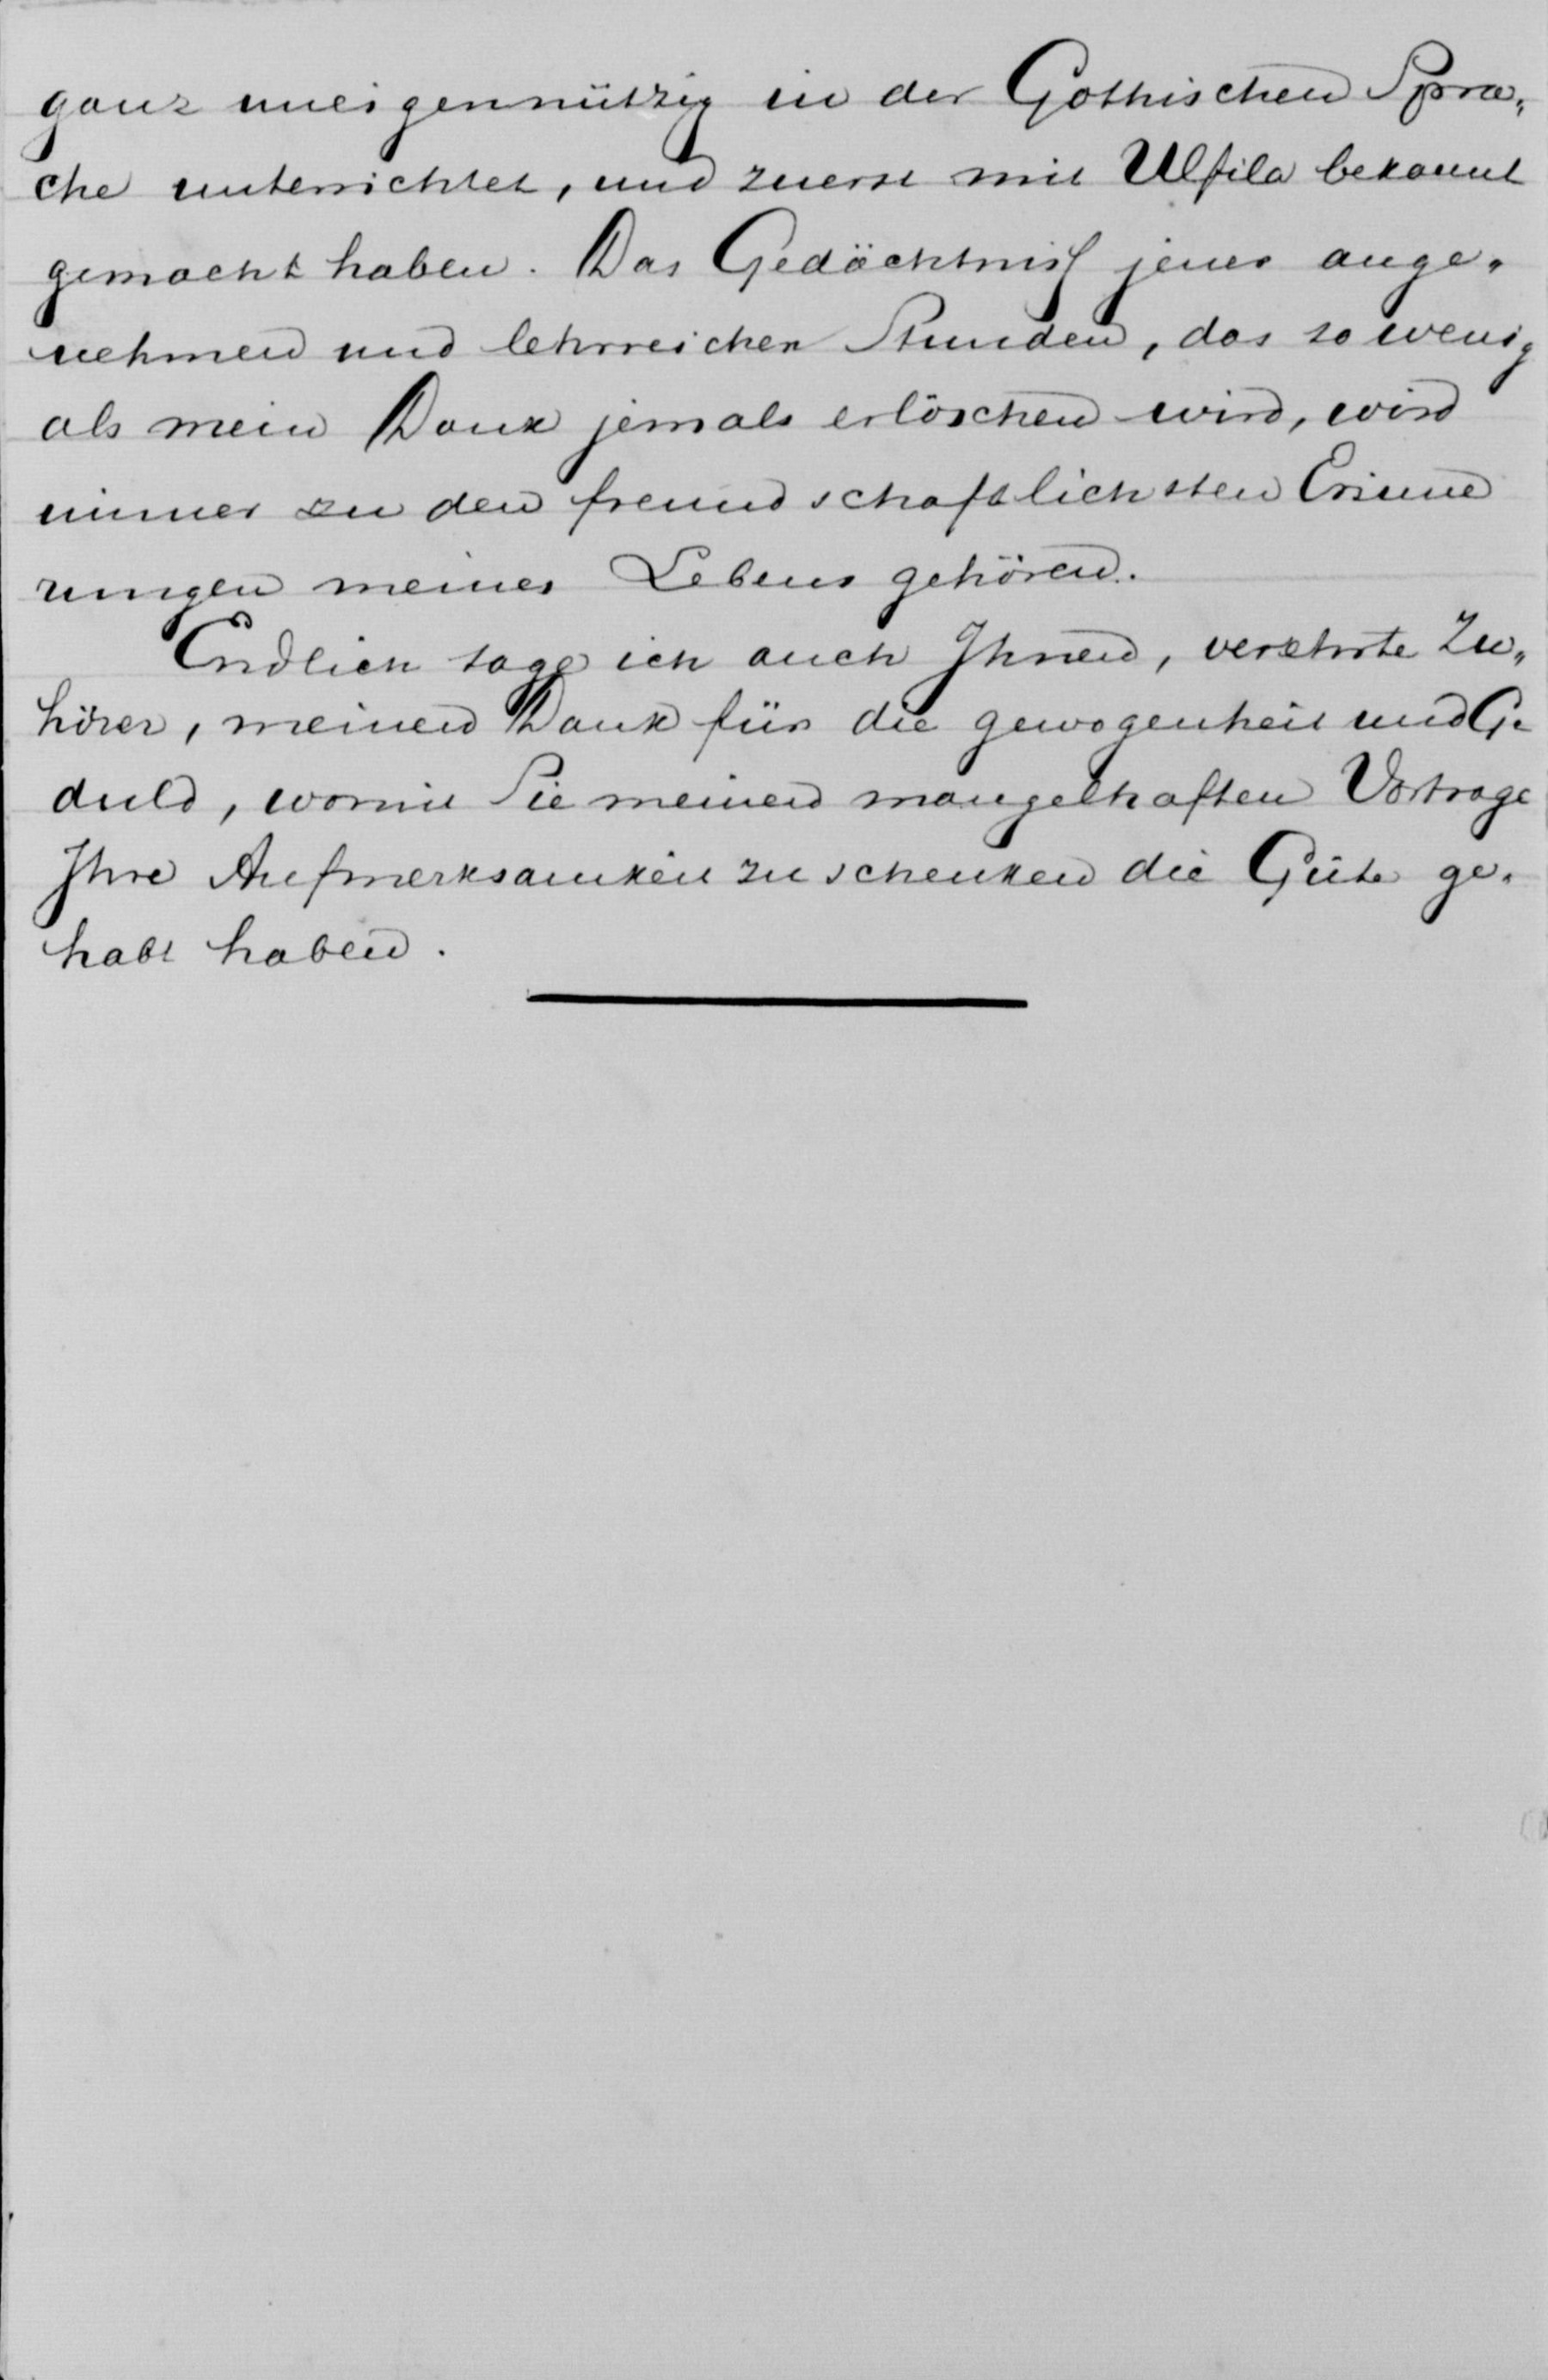 ganz uneigennützig in der Gothischen Spra„
che unterrichtet, und zuerst mit Ulfila bekannt
gemacht haben. Das Gedächtniß jener ange„
nehmen und lehrreichen Stunden, das so wenig
als mein Dank jemals erlöschen wird, wird
immer zu den freundschaftlichsten Erinne
rungen meines Lebens gehören.
Endlich sage ich auch Ihnen, verehrte Zu„
hörer, meinen Dank für die gewogenheit und Ge
duld, womit Sie meinen mangelhaften Vortrage
Ihre Aufmerksamkeit zu schenken die Güte ge„
habt haben.